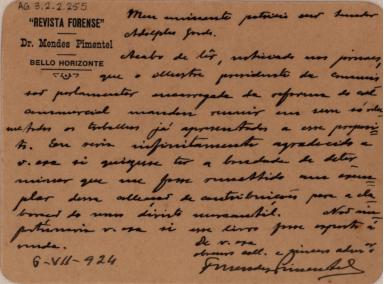 AG 3.2.2.255
"REVISTA FORENSE"
Dr. Mendes Pimentel
BELLO HORIZONTE
Meu eminente patricio snr senador
Adolpho Gordo.
Acabo de lêr, noticiado nos jornaes,
que o illustre presidente da commis-
são parlamentar encarregada da reforma do cod.
commercial mandou reunir em um só
os trabalhos já apresentados a esse proposi-
to. Eu seria infinitamente agradecido a
v. exa si quizesse ter a bondade de deter-
minar que me fosse remettido um exem-
plar dessa collecção de contribuições para a ela-
boração do nosso direito mercantil. Não im-
portunaria v. exa si esse livro fosse exposto á
venda.
De v. exa
e sincero
FMendes Pimentel
6-VII-924